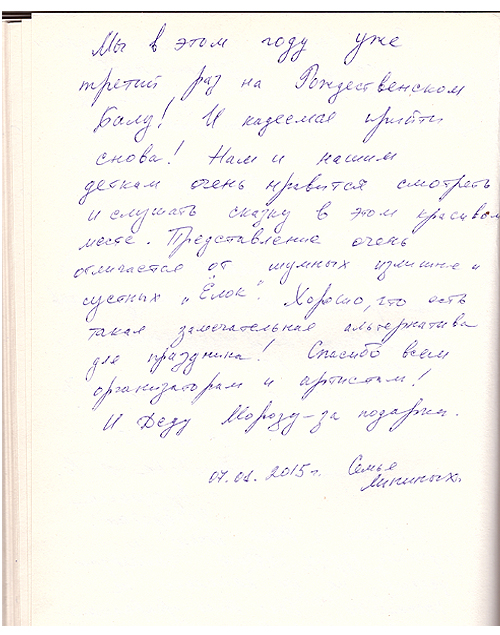 Мы в этом году уже
третий раз на Рождественском
Балу! И надеемся прийти
снова! Нам и нашим
деткам очень нравится смотреть
и слушать сказку в этом красивом
месте. Представление очень
отличается от шумных излишне и
суетных „Ёлок". Хорошо, что есть
такая замечательная альтернатива
для праздника! Спасибо всем
организаторам и артистам!
И Деду Морозу – за подарки.
07.01.2015 г. Семья